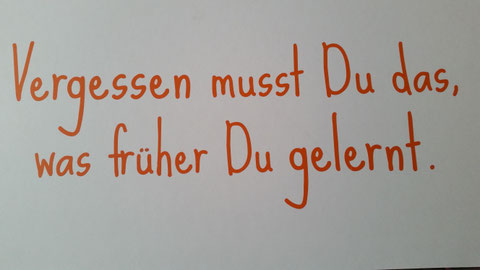 Vergessen musst Du das,
was früher Du gelernt.